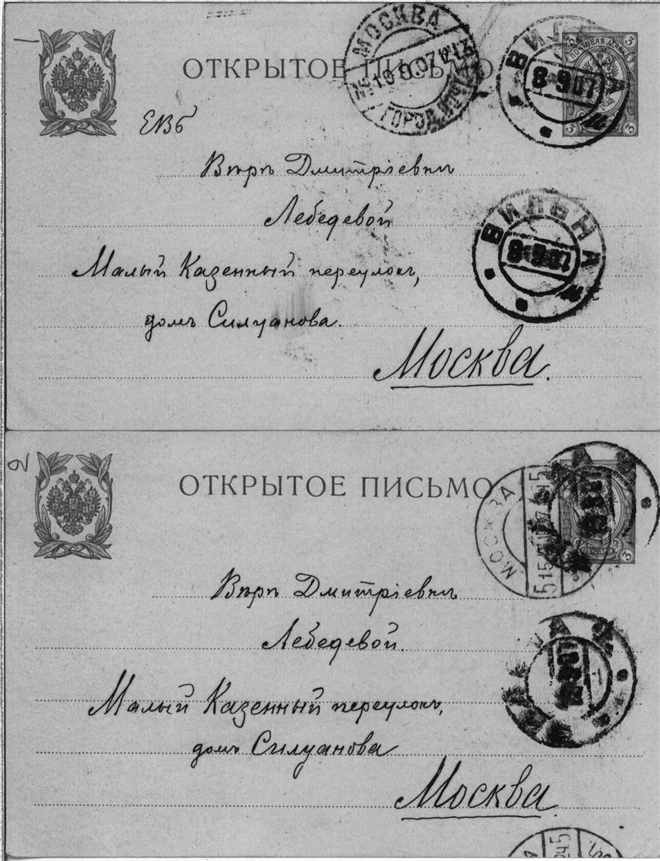 1
ОТКРЫТОЕ ПИСЬМО
МОСКВА
10 9 07
ВИЛЬНА
8-9.07
ЕВБ
Вѣрѣ Дмитріевнѣ
Лебедевой
ВИЛЬНА
8-9.07
Малый Казенный переулокъ,
домъ Силуанова.
Москва.
2
ОТКРЫТОЕ ПИСЬМО
МОСКВА
Вѣрѣ Дмитріевнѣ
Лебедевой.
Малый Казенный переулокъ,
домъ Силуанова
Москва